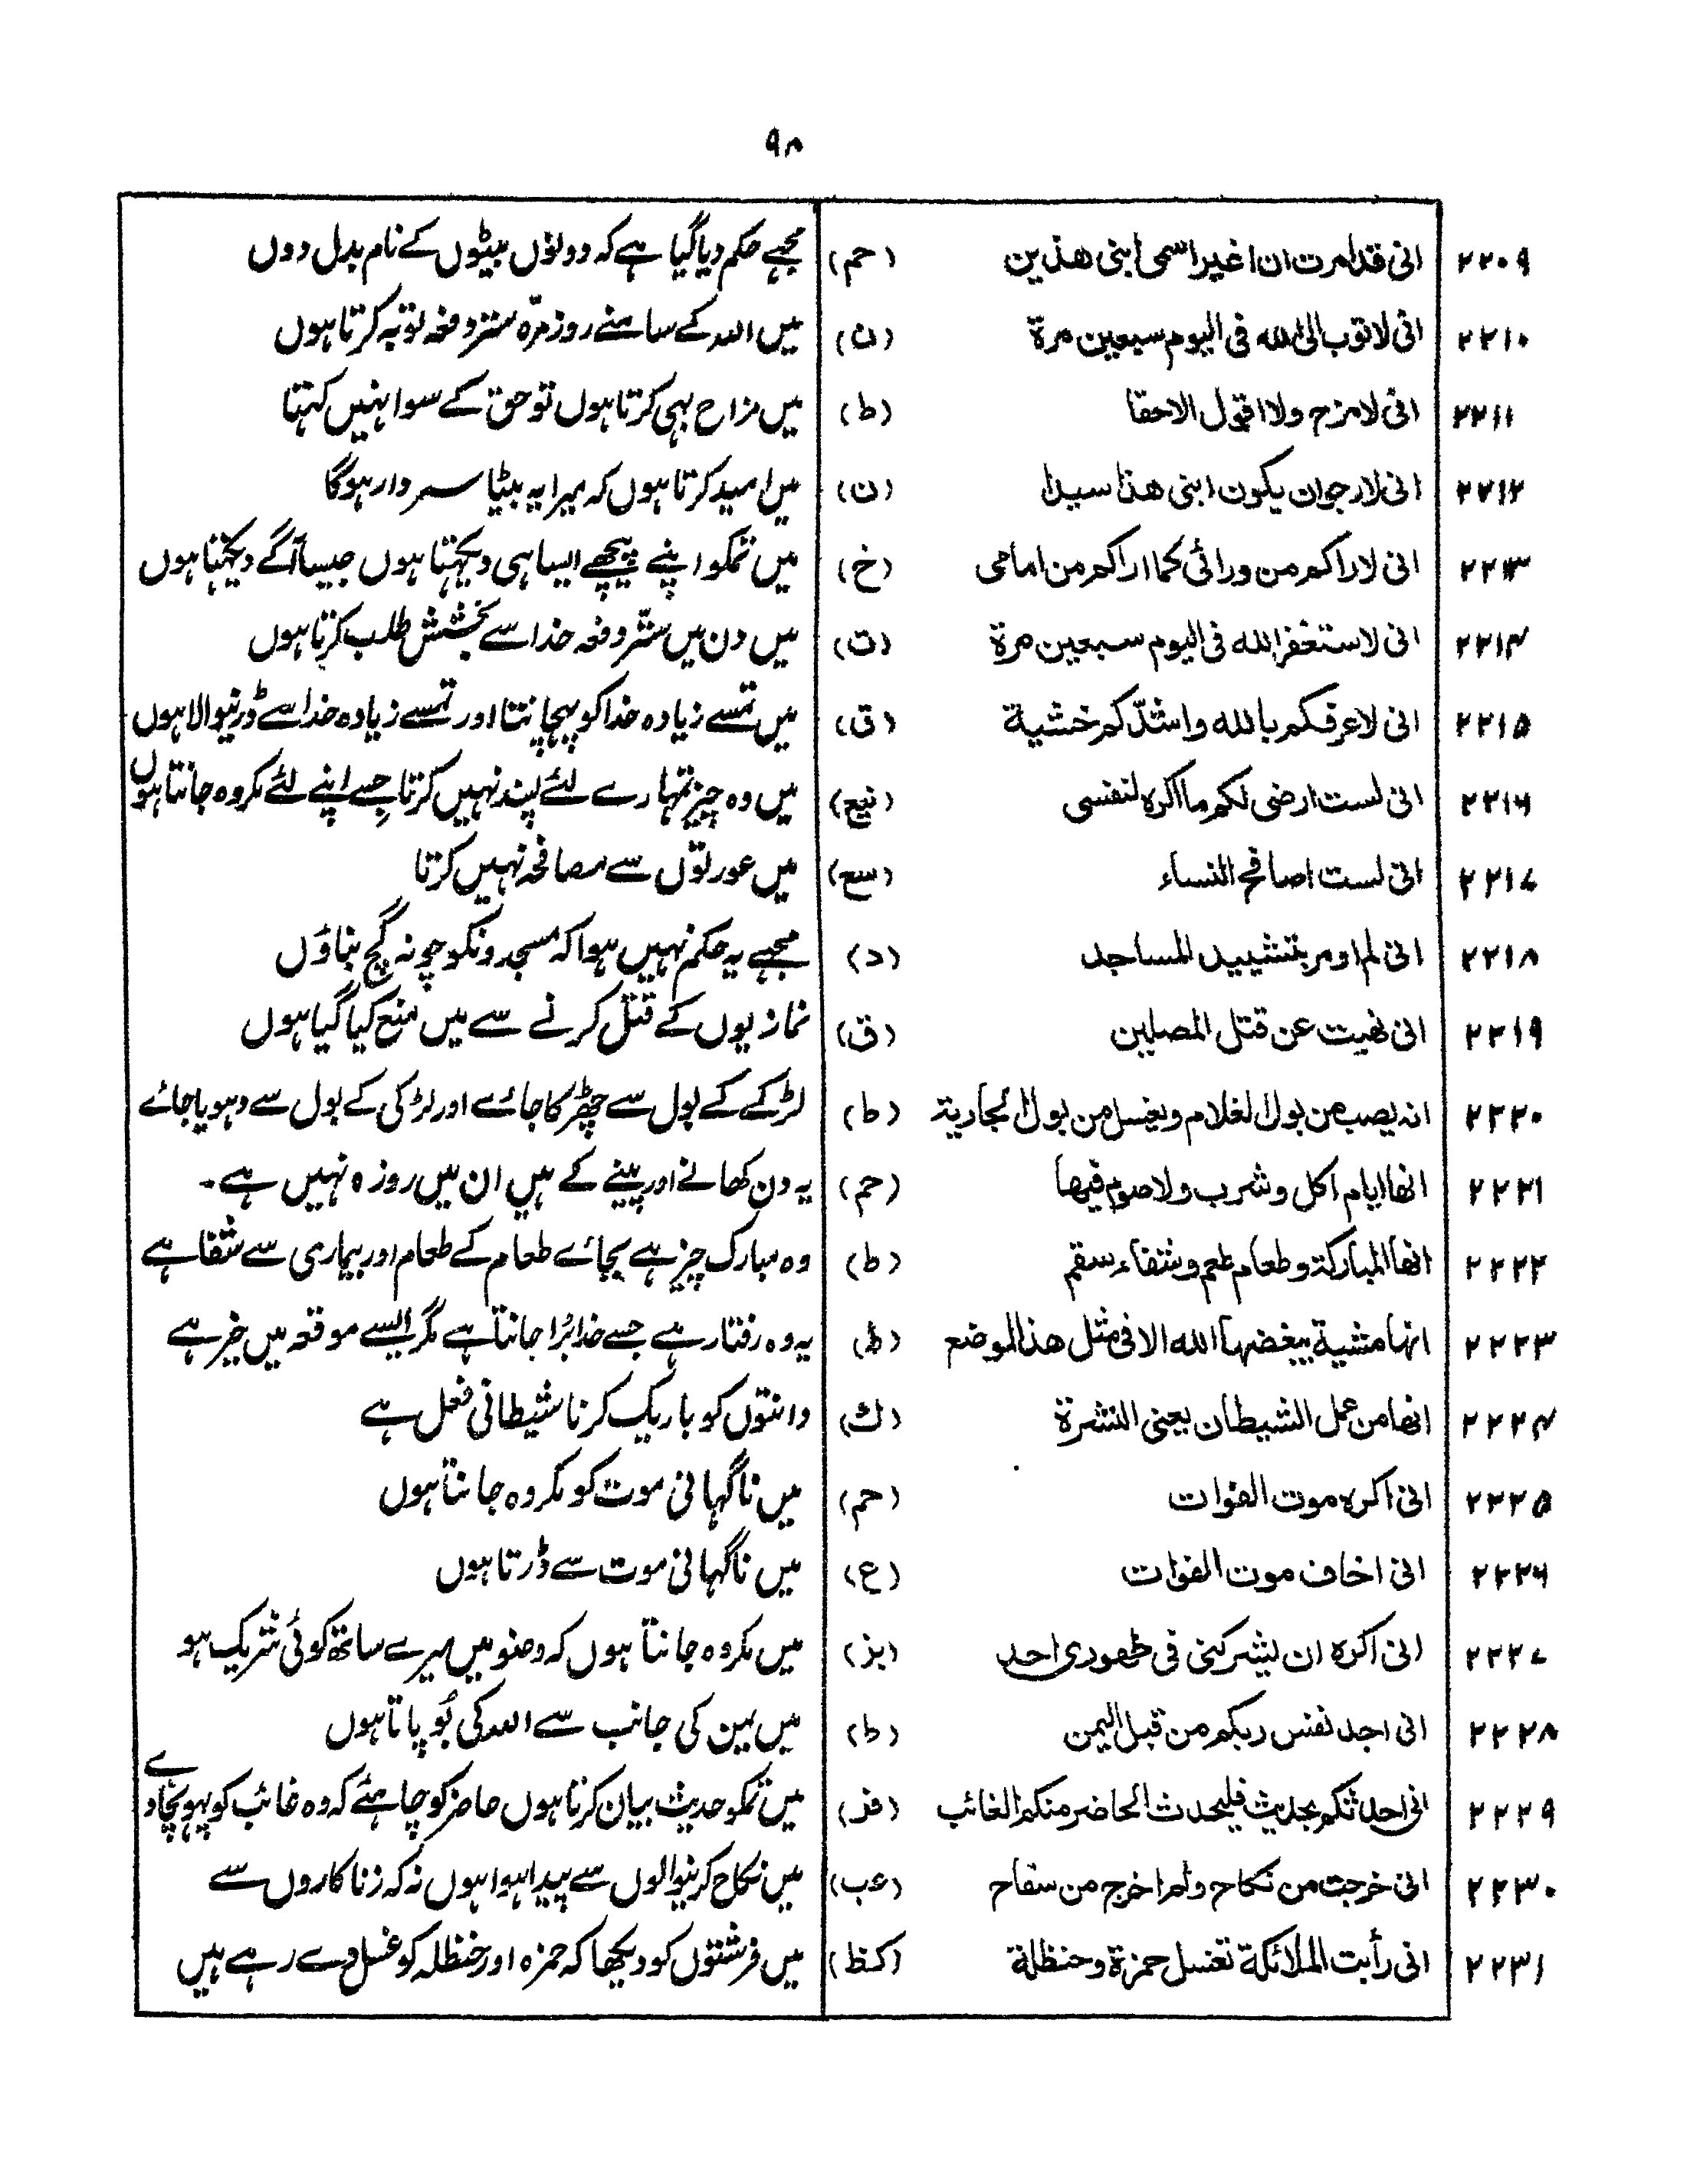 ۹۸
۲۲۰۹ انی قد امرت ان اغیر اسمی ابنی هذین (حم) مجہے حکم دیا گیا ہے کہ دونوں بیٹوں کے نام بدل دوں
۲۲۱۰ انی لا توب الی الله فی الیوم سبعین مرة (ن) میں اللہ کے سامنے روز مرّہ ستر دفعہ توبہ کرتا ہوں
۲۲۱۱ انی لا مزح ولا اقول الا حقا (ط) میں مزاح بہی کرتا ہوں تو حق کے سوا نہیں کہتا
۲۲۱۲ انی لارجو ان یکون ابنی هذا سیدا (ن) میں امید کرتا ہوں کہ میرا یہ بیٹا سردار ہوگا
۲۲۱۳ انی لاراکم من ورائی کما اراکم من امامی (خ) میں تمکو اپنے پیچھے ایسا ہی دیکہتا ہوں جیسا آگے دیکہتا ہوں
۲۲۱۴ انی لاستغفر الله فی الیوم سبعین مرة (ت) میں دن میں ستّر دفعہ خدا سے بخشش طلب کرتا ہوں
۲۲۱۵ انی لاعرفکم بالله واشدّکم خشیة (ق) میں تمسے زیادہ خدا کو پہچانتا اور تمسے زیادہ خدا سے ڈرنیوالا ہوں
۲۲۱۶ انی لست ارضی لکم ما اکره لنفسی (نیع) میں وہ چیز تمہارے لئے پسند نہیں کرتا جسے اپنے لئے مکروہ جانتا ہوں
۲۲۱۷ انی لست اصافح النساء (سع) میں عورتوں سے مصافحہ نہیں کرتا
۲۲۱۸ انی لم اومر بتشیید المساجد (د) مجہے یہ حکم نہیں ہوا کہ مسجدونکو چونہ گچ بناؤں
۲۲۱۹ انی نهیت عن قتل المصلین (ق) نمازیوں کے قتل کرنے سے میں منع کیا گیا ہوں
۲۲۲۰ انه یصب من بول الغلام ویغسل من بول الجاریة (ط) لڑکے کے بول سے چھڑکا جائے اور لڑکی کے بول سے دہویا جائے
۲۲۲۱ انها ایام اکل و شرب ولا صوم فیها (حم) یہ دن کھانے اور پینے کے ہیں ان میں روزہ نہیں ہے۔
۲۲۲۲ انها المبارکة و طعام طعم و شفاء سقم (ط) وہ مبارک چیز ہے بجائے طعام کے طعام اور بیماری سے شفا ہے
۲۲۲۳ انها مشیة یبغضها الله الا فی مثل هذا الموضع (ط) یہ وہ رفتار ہے جسے خدا بُرا جانتا ہے مگر ایسے موقعہ میں خیر ہے
۲۲۲۴ انها من عمل الشیطان یعنی النشرة (ك) دانتوں کو باریک کرنا شیطانی فعل ہے
۲۲۲۵ انی اکره موت الفوات (حم) میں ناگہانی موت کو مکروہ جانتا ہوں
۲۲۲۶ انی اخاف موت الفوات (ع) میں ناگہانی موت سے ڈرتا ہوں
۲۲۲۷ انی اکره ان یشرکنی فی طهوری احد (بز) میں مکروہ جانتا ہوں کہ وضو میں میرے ساتھ کوئی شریک ہو
۲۲۲۸ انی اجد نفس ربکم من قبل الیمن (ط) میں یمن کی جانب سے اللہ کی بُو پاتا ہوں
۲۲۲۹ انی احدثکم بحدیث فلیحدث الحاضر منکم الغائب (فز) میں تمکو حدیث بیان کرتا ہوں حاضر کو چاہئے کہ وہ غائب کو پہونچا دے
۲۲۳۰ انی خرجت من نکاح ولم اخرج من سفاح (عب) میں نکاح کرنیوالوں سے پیدا ہوا ہوں نہ کہ زنا کاروں سے
۲۲۳۱ انی رأیت الملائکة تغسل حمزة و حنظلة (کظ) میں فرشتوں کو دیکھا کہ حمزہ اور حنظلہ کو غسل دے رہے ہیں